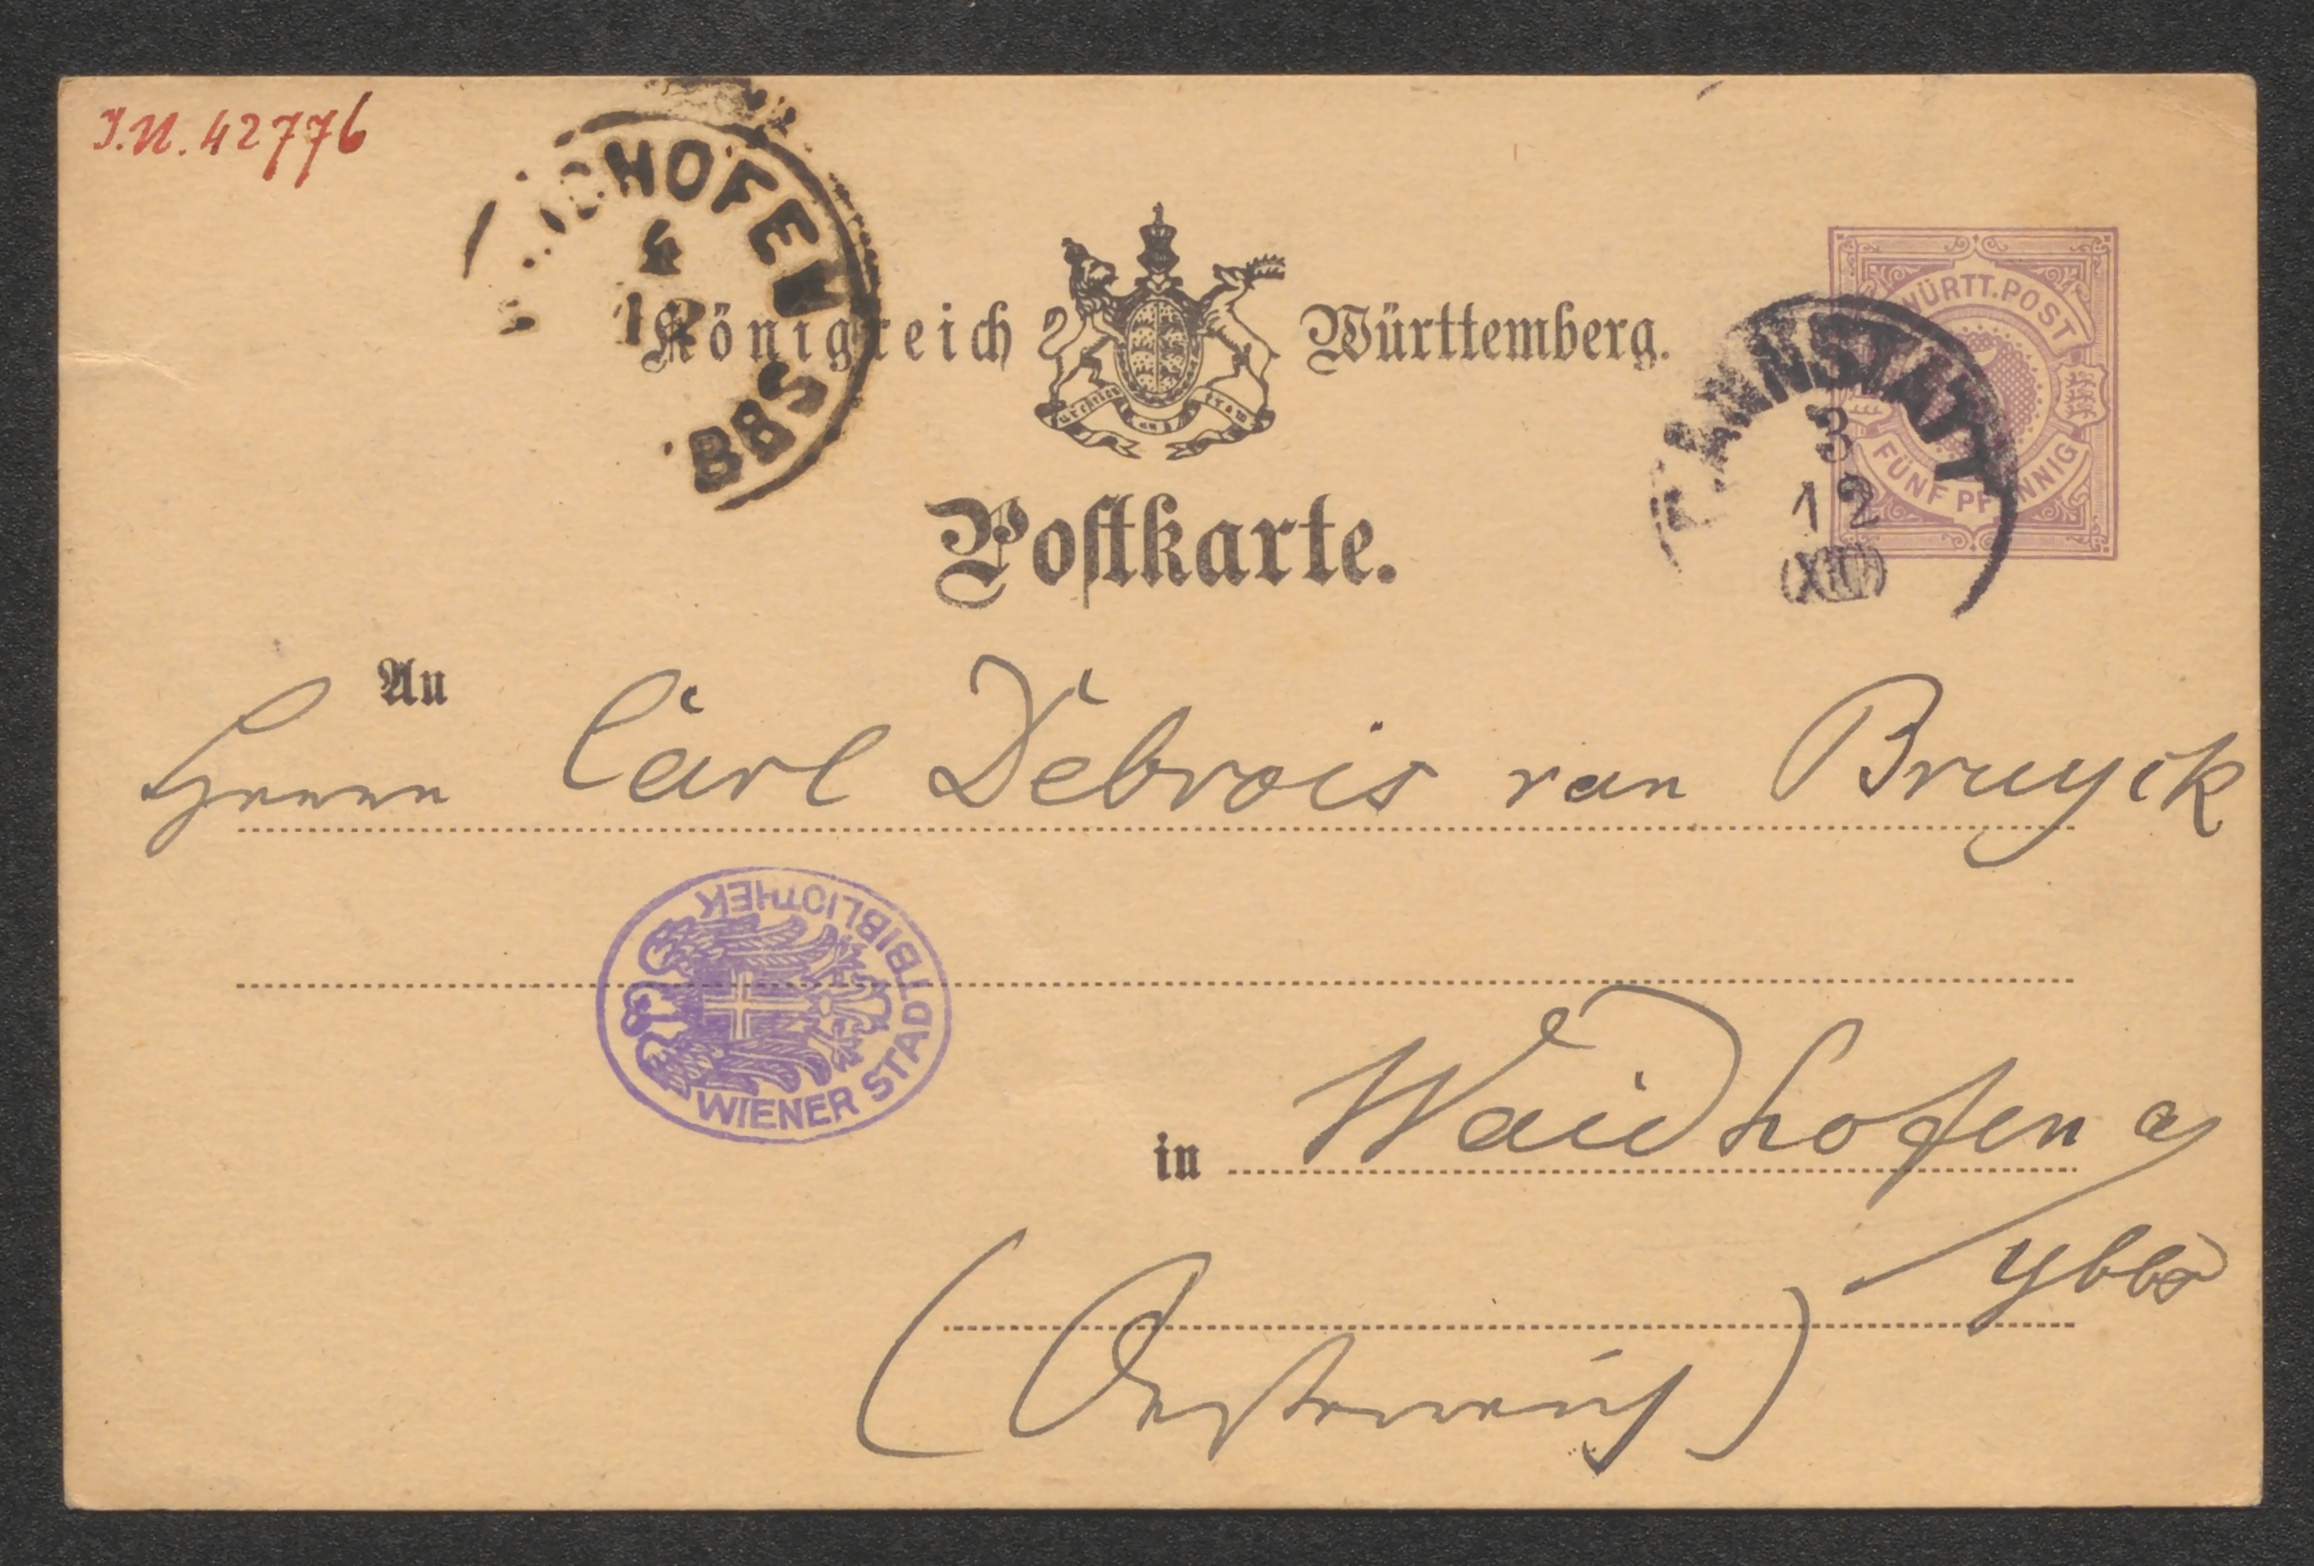 I.N. 42776
HOFEN
YBBS
4
12
Königreich Württemberg.
WÜRTT. POST
FÜNF PFENNIG
CANNSTATT
3
12
Postkarte.
An
Herrn Carl Debrois van Bruyck
WIENER STADTBIBLIOTHEK
in Waidhofen a/
Ybbs
(Oesterreich)